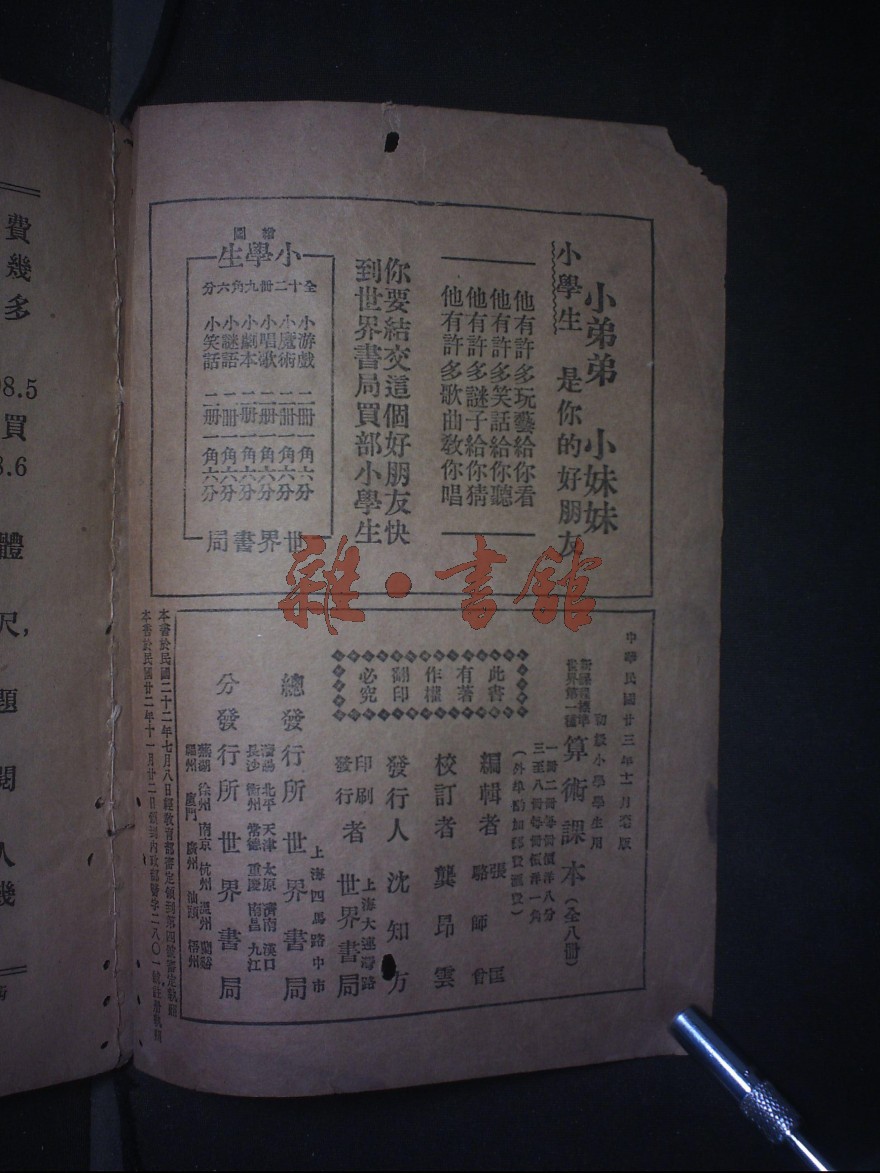 小弟弟 小妹妹
小學生 是你的好朋友
他有許多玩藝給你看
他有許多笑話給你聽
他有許多謎子給你猜
他有許多歌曲敎你唱
你要結交這個好朋友快
到世界書局買部小學生
繪圖
小學生
全十二冊九角六分
小游戲 二冊一角六分
小魔術 二冊一角六分
小唱歌 二冊一角六分
小劇本 二冊一角六分
小謎語 二冊一角六分
小笑話 二冊一角六分
世界書局
雜·書館
中華民國廿三年十一月
初級小學學生用
世界第一種
算術課本(全八冊)
一冊二冊每冊價洋八分
三至八冊每冊價洋一角
(外埠酌加郵費匯費)
編輯者 張匡
駱師曾
校訂者 龔昂雲
發行人 沈知方
上海大連灣路
印刷發行者 世界書局
上海四馬路中市
總發行所 世界書局
北平 天津 太原 濟南 漢口
長沙 衡州 常德 重慶 南昌 九江
分發行所 世界書局
蕪湖 徐州 南京 杭州 溫州
廈門 廣州 汕頭 梧州
此書
有著
作權
翻印
必究
本書於民國二十二年七月八日經敎育部審定領到
本書於民國廿二年十一月廿二日領到內政部警字二八〇一號註冊執照
費幾多
8.5
買
8.6
體
尺,
題
閱
人
幾